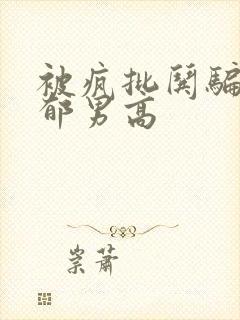 被疯批鬨騙
郁男高
崇萧